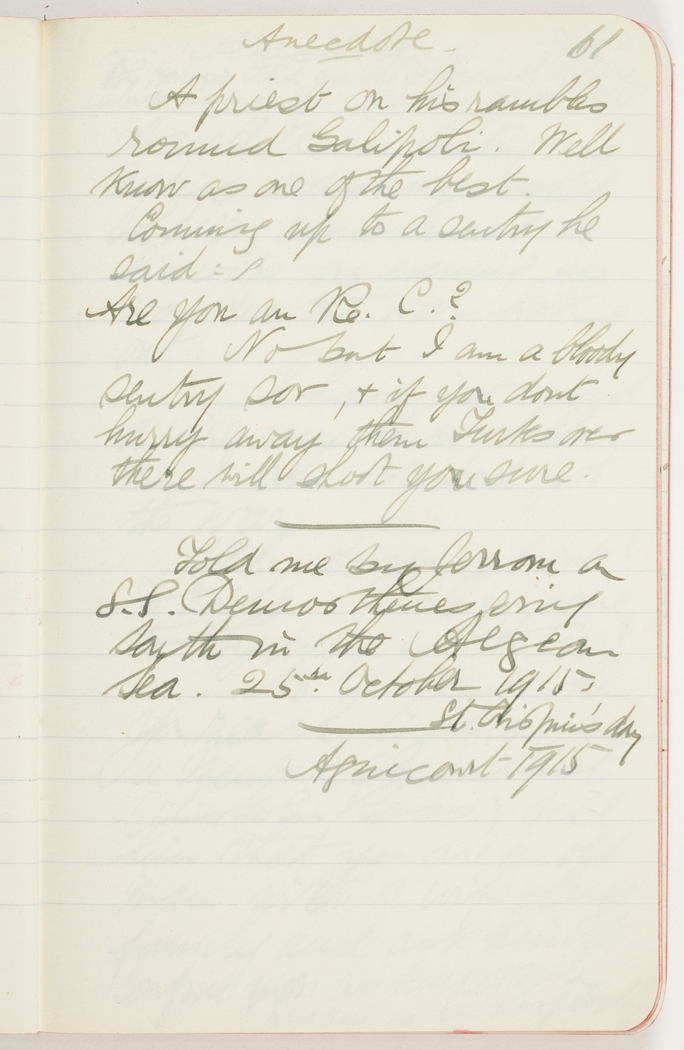 Anecdote. 61
A priest on his rambles
round Galipoli. Well
know as one of the best.
Coming up to a sentry he
said :-
Are you an R. C.?
No but I am a bloody
sentry sor, + if you dont
hurry away them Turks over
there will shoot you sure.
Told me by on
S.S. Demosthenes going
south in the Aegean
Sea. 25th October 1915.
St. Crispin's day
Agincourt 1915